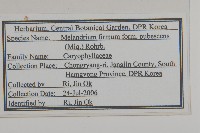 Herbarium, Central Botanical Garden, DPR Korea
Species Name: Melandrium firmum form. pubescens
(Miq.) Rohrb.
Family Name: Caryophyllaceae
Collection Place: Jongalin County, South
Hamgyong Province, DPR Korea
Collected by Ri, Jin Ok
Collection Date: 24-Jul-2006
Identified by Ri, Jin Ok